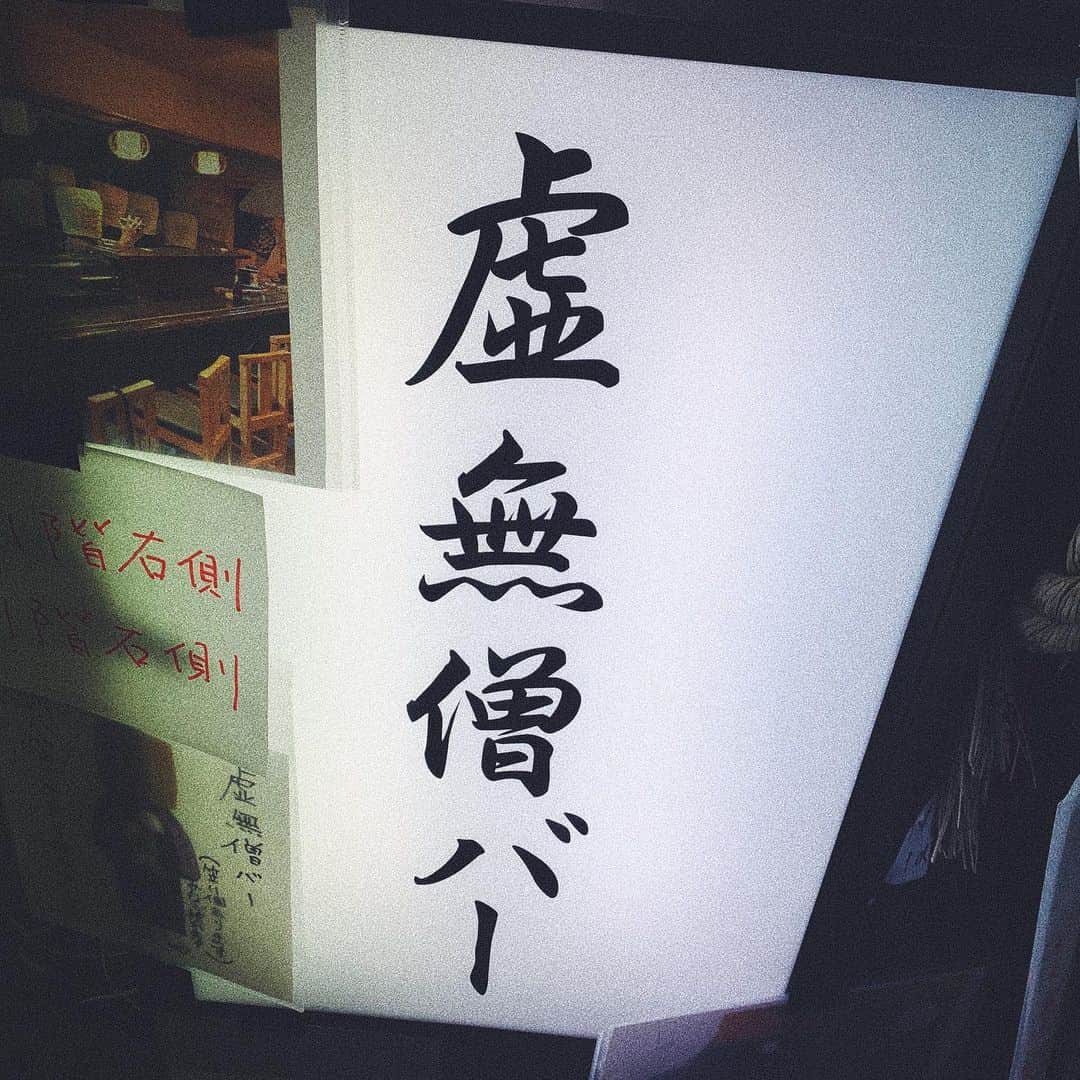 虚無僧バー
階右側
階右側
虚無僧バー